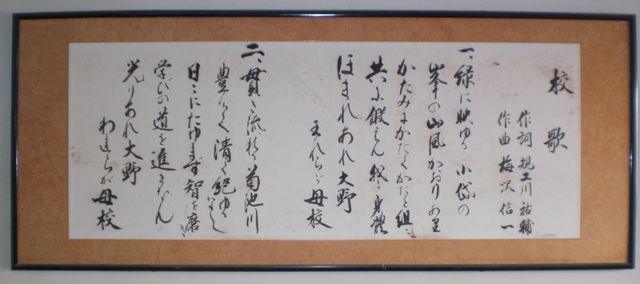 校歌
作詞 規工川祐輔
作曲 梅沢信一
一、緑に映ゆる小岱の
峯の山風かおりあり
かたみにかたくかたを組み
共に鍛えん我が身体
ほまれあれ大野
われらが母校
二、貫く流れ菊池川
豊けく清く絶ゆるなし
日日にたゆまず智を磨き
学びの道を進みなん
光りあれ大野
われらが母校